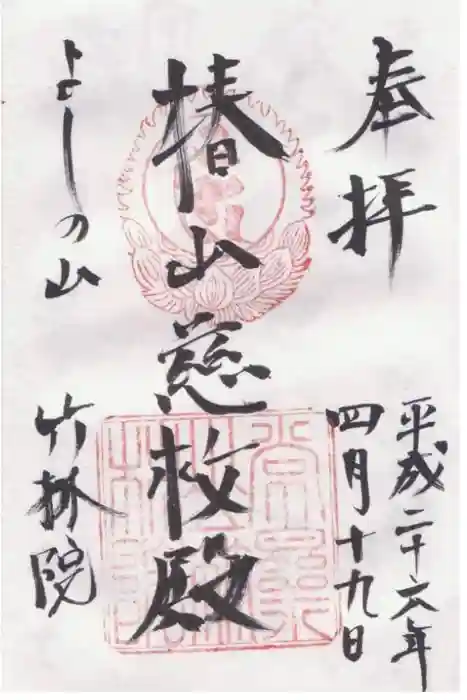 奉拝
平成二十六年
四月十九日
椿山慈救殿
よしの山
竹林院